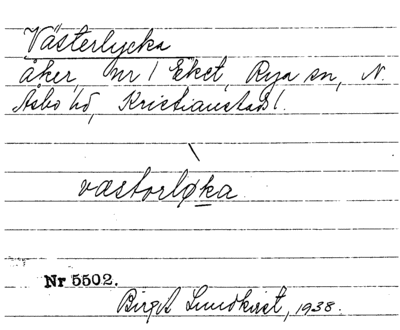 Västerlycka
åker, nr 1 Eket, Rya sn, N.
Åsbo hd, Kristianstad l.
væstorløka
Nr 5502.
Birgit Lundkvist, 1938.